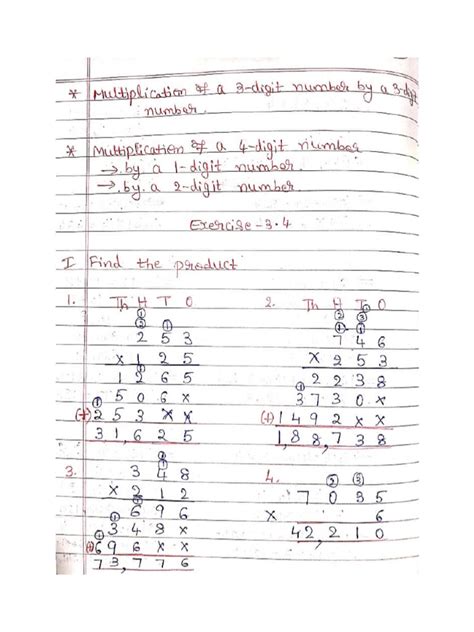 * Multiplication of a 3-digit number by a 3-digit
number.
* Multiplication of a 4-digit number
→ by a 1-digit number.
→ by a 2-digit number.
Exercise-3.4
I Find the product
1. Th H T O
① 
② ①
2 5 3
x 1 2 5
1 2 6 5
① 5 0 6 x
(+) 2 5 3 x x
3 1, 6 2 5
2. Th H T O
② ③
① ①
7 4 6
x 2 5 3
① 2 2 3 8
3 7 3 0 x
(+) 1 4 9 2 x x
1, 8 8, 7 3 8
3.
3 4 8
x 2 1 2
6 9 6
3 4 8 x
(+) 6 9 6 x x
7 3, 7 7 6
4. ② ③
7 0 3 5
x 6
4 2, 2 1 0